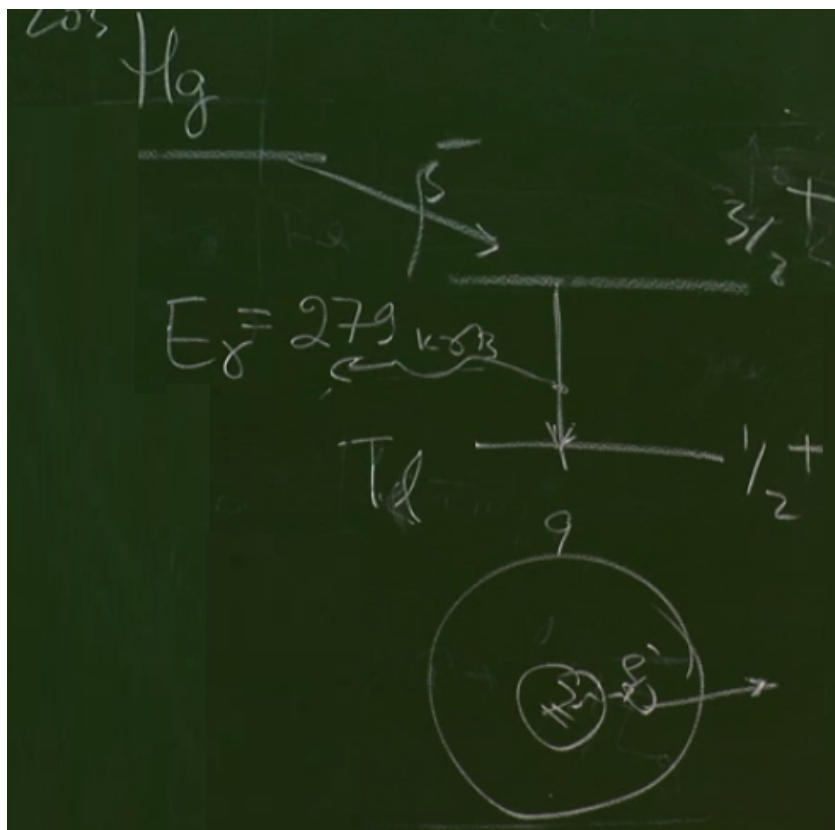 203
Hg
β⁻
3/2 +
Eγ = 279 кэВ
Tl
1/2 +